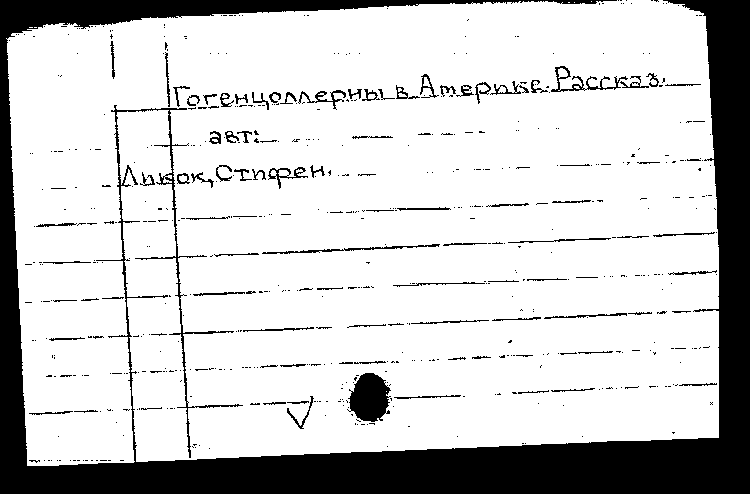 Гогенцоллерны в Америке. Рассказ.
авт:
Ликок, Стифен.